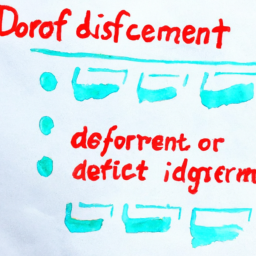 Dorof disfcement
deforrent or
defict idgsrerm